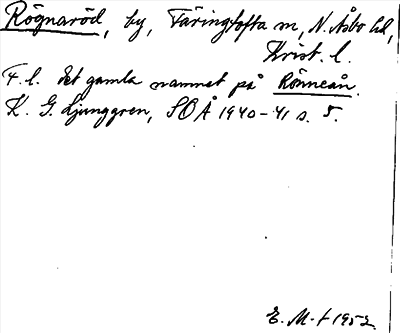 Rögnaröd, by, Färingtofta sn, N. Åsbo hd,
Krist. l.
F. l. det gamla namnet på Rönneån.
K. G. Ljunggren, SOÅ 1940-41 s. 5.
E. M-t 1952